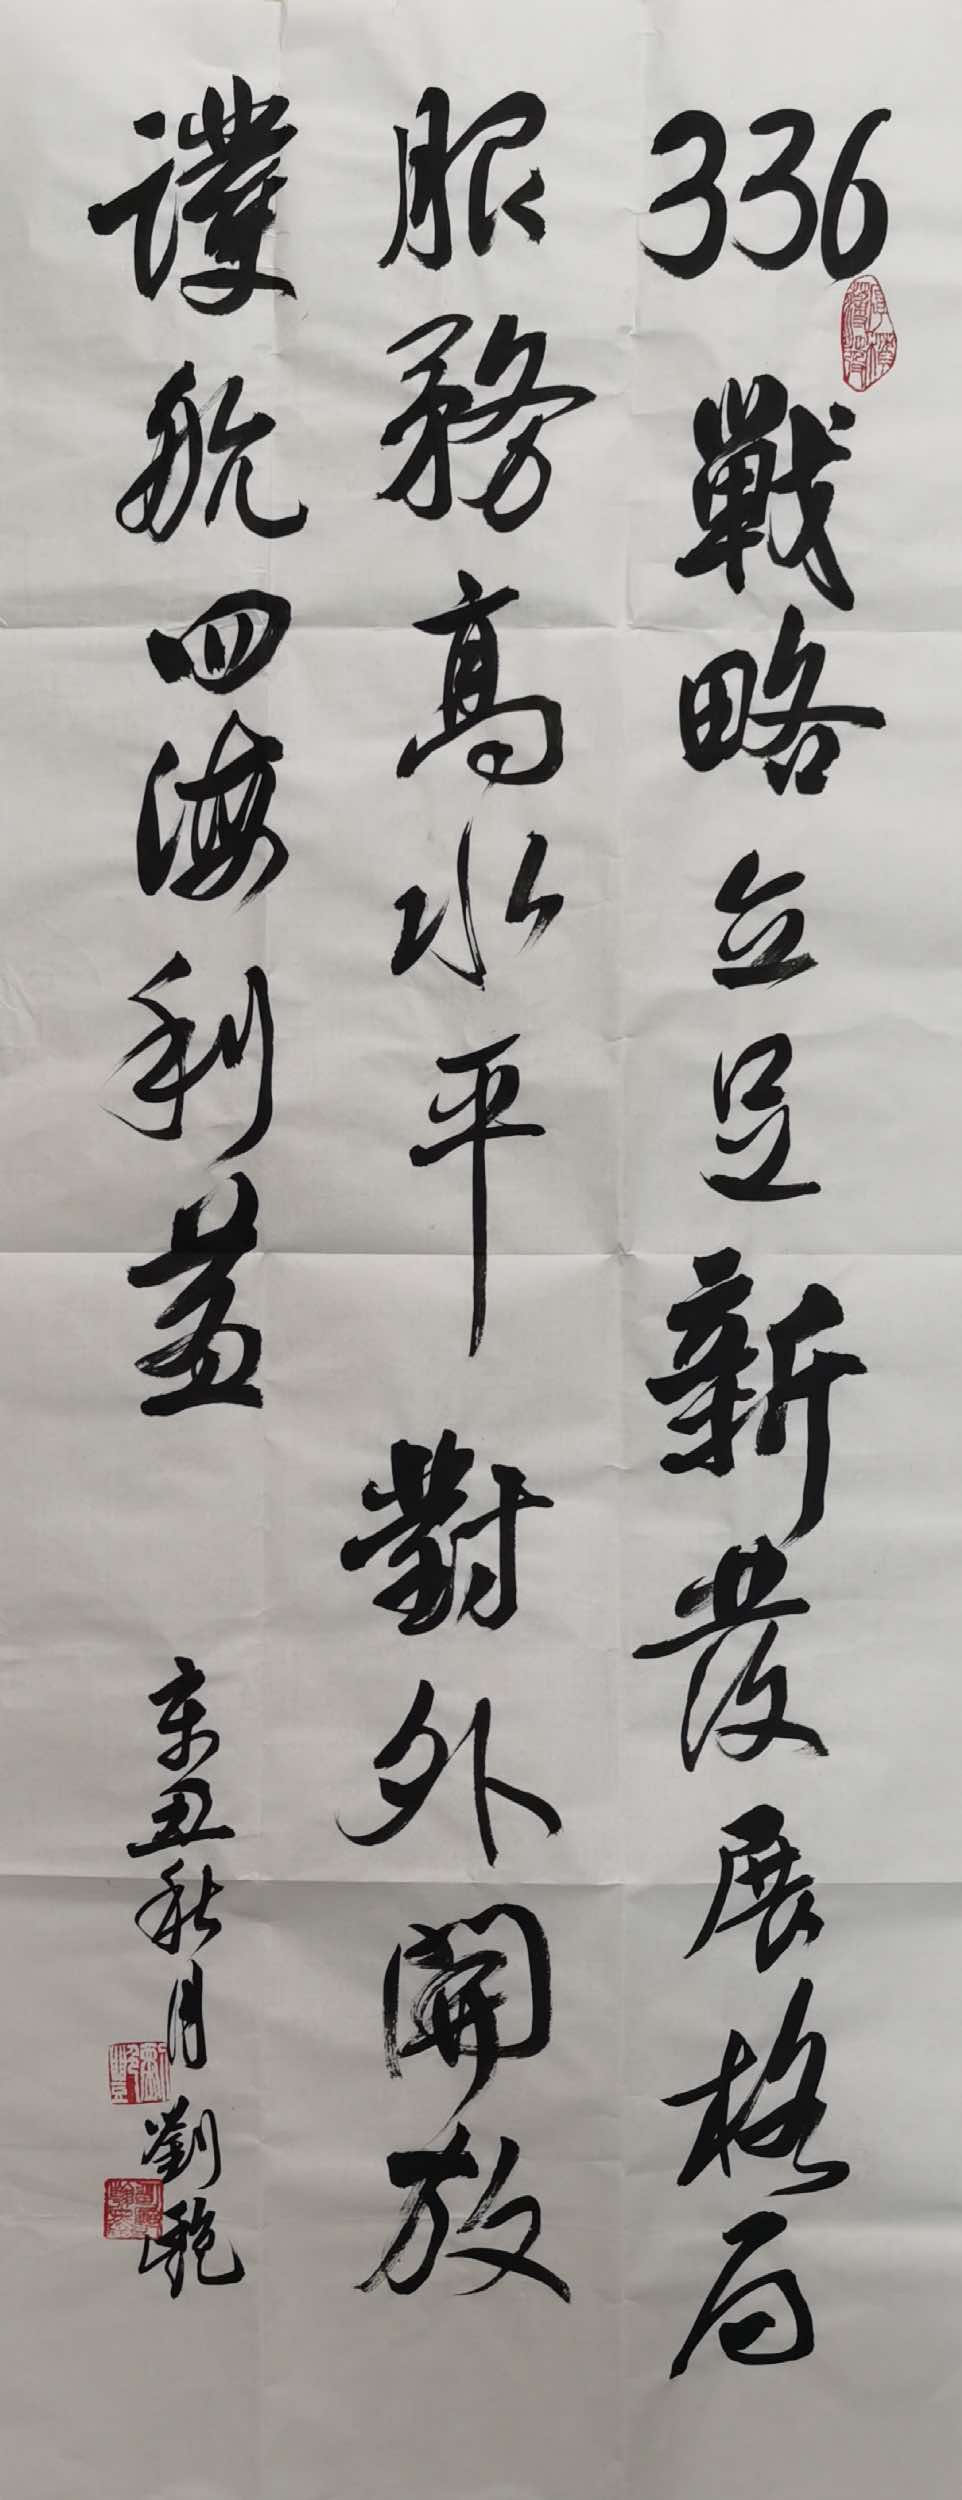 336戰略立足新發展格局
服務高水平對外開放
護航四海利益
辛丑秋月劉艶